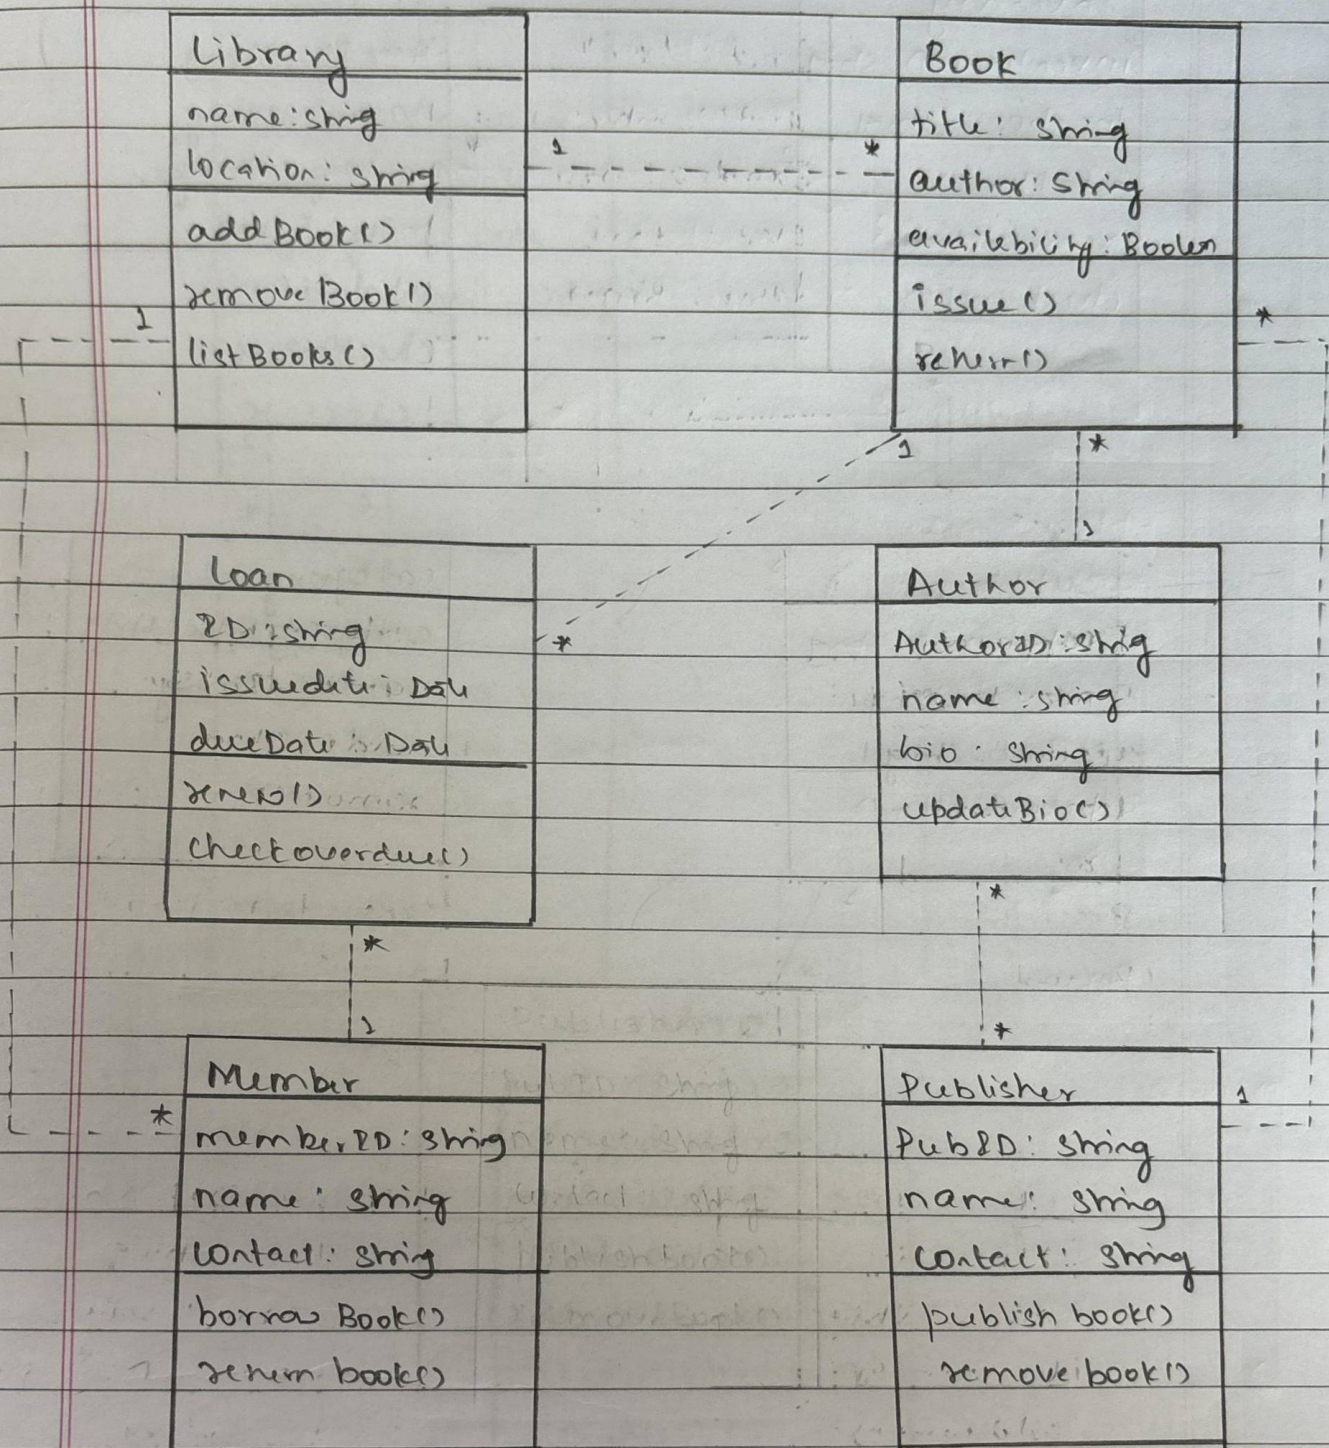 Library
name: string
location: string
addBook()
remove Book()
listBooks()
1
*
1
Book
title: string
author: String
availability: Boolen
issue()
return()
*
1
*
1
Loan
ID: string
issuedate: Date
dueDate: Date
renew()
checkoverdue()
*
Author
AuthorID: string
name: string
bio: string
updateBio()
*
*
*
1
Member
*
memberID: string
name: string
contact: string
borrow Book()
return book()
Publisher
1
PubID: string
name: string
contact: string
publish book()
remove book()